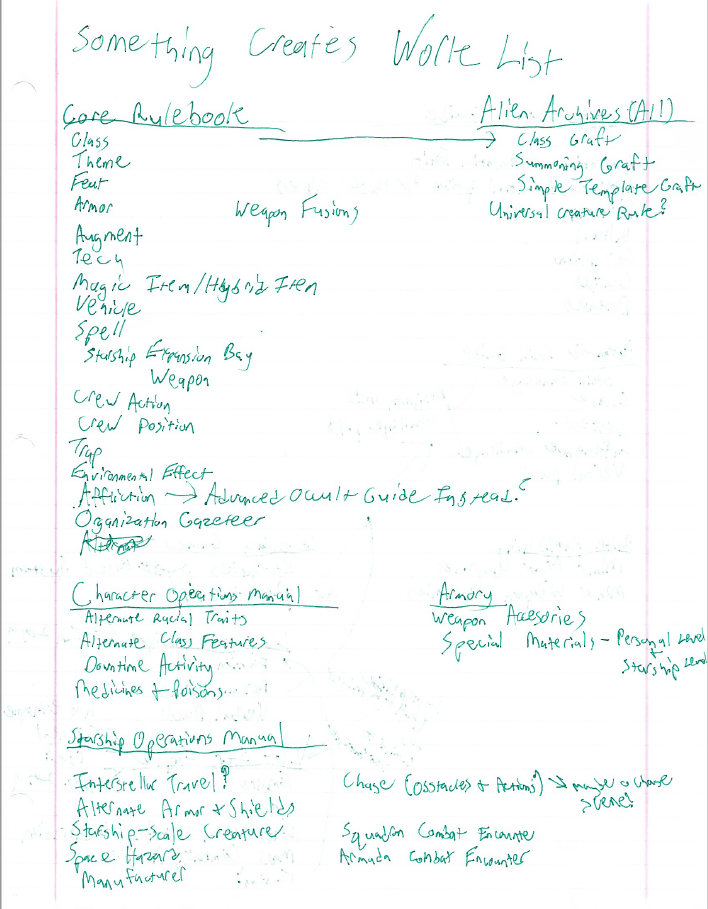 Something Creates Work List
Core Rulebook
Class
Theme
Feat
Armor
Weapon Fusions
Augment
Tech
Magic Item/Hybrid Item
Vehicle
Spell
Starship Expansion Bay
Weapon
Crew Action
Crew Position
Trap
Environmental Effect
Affliction → Advanced Occult Guide Instead?
Organization Gazeteer
Alien Archives (All)
Class Graft
Summoning Graft
Simple Template Graft
Universal Creature Rule?
Character Operations Manual
Alternate Racial Traits
Alternate Class Features
Downtime Activity
Medicines + Poisons
Armory
Weapon Accesories
Special Materials - Personal Level
+
Starship Level
Starship Operations Manual
Interstellar Travel?
Alternate Armor + Shields
Starship-Scale Creature
Space Hazard
Manufacturer
Chase (Obstacles + Actions) → maybe a chase
scene?
Squadron Combat Encounte
Armada Combat Encounter